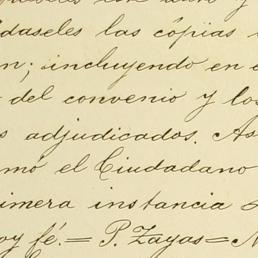 daseles las cópias
n; incluyendo en
del convenio y los
s adjudicados. As
mó el Ciudadano
imera instancia
oy fé.= P. Zayas=